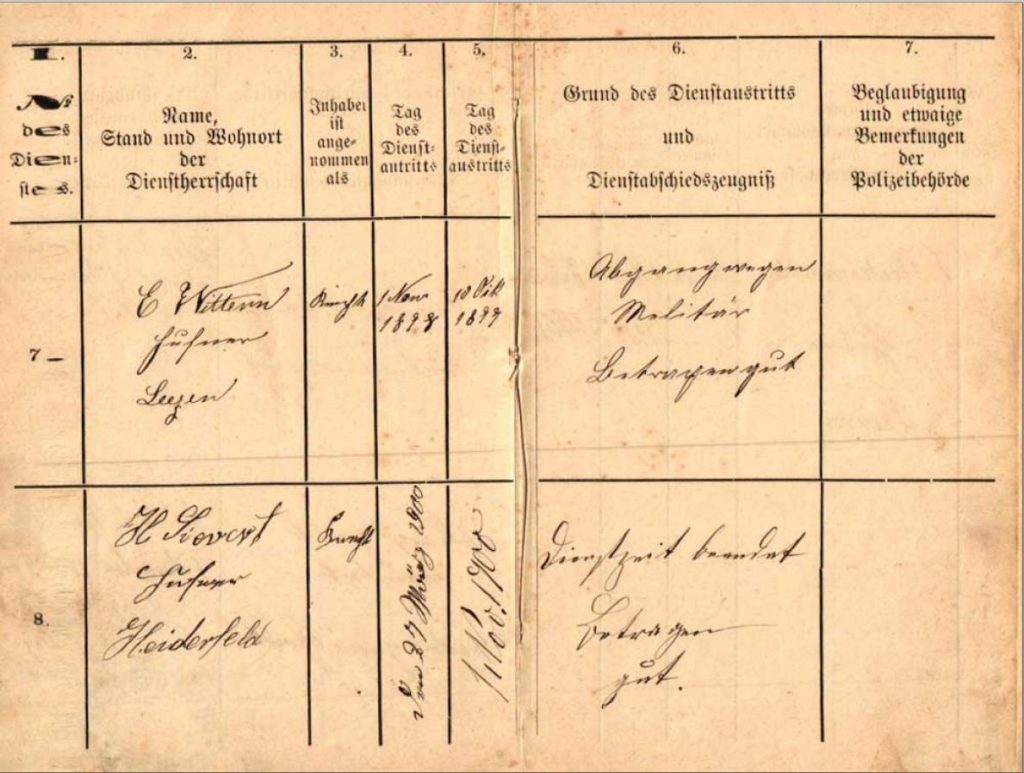 1.
№
des
Dien-
stes.
2.
Name,
Stand und Wohnort
der
Dienstherrschaft
3.
Inhaber
ist
ange-
nommen
als
4.
Tag
des
Dienst-
antritts
5.
Tag
des
Dienst-
austritts
6.
Grund des Dienstaustritts
und
Dienstabschiedszeugniß
7.
Beglaubigung
und etwaige
Bemerkungen
der
Polizeibehörde
7 –
E Wittern
Hufner
Leezen
Knecht
1 Nov
1898
10 Okt
1899
Abgang wegen
Melitär
Betragen gut
8.
H Sievert
Hufner
Heiderfeld
Knecht
den 27 März 1900
1 Nov. 1900
Dienstzeit beendet
Betragen
gut.